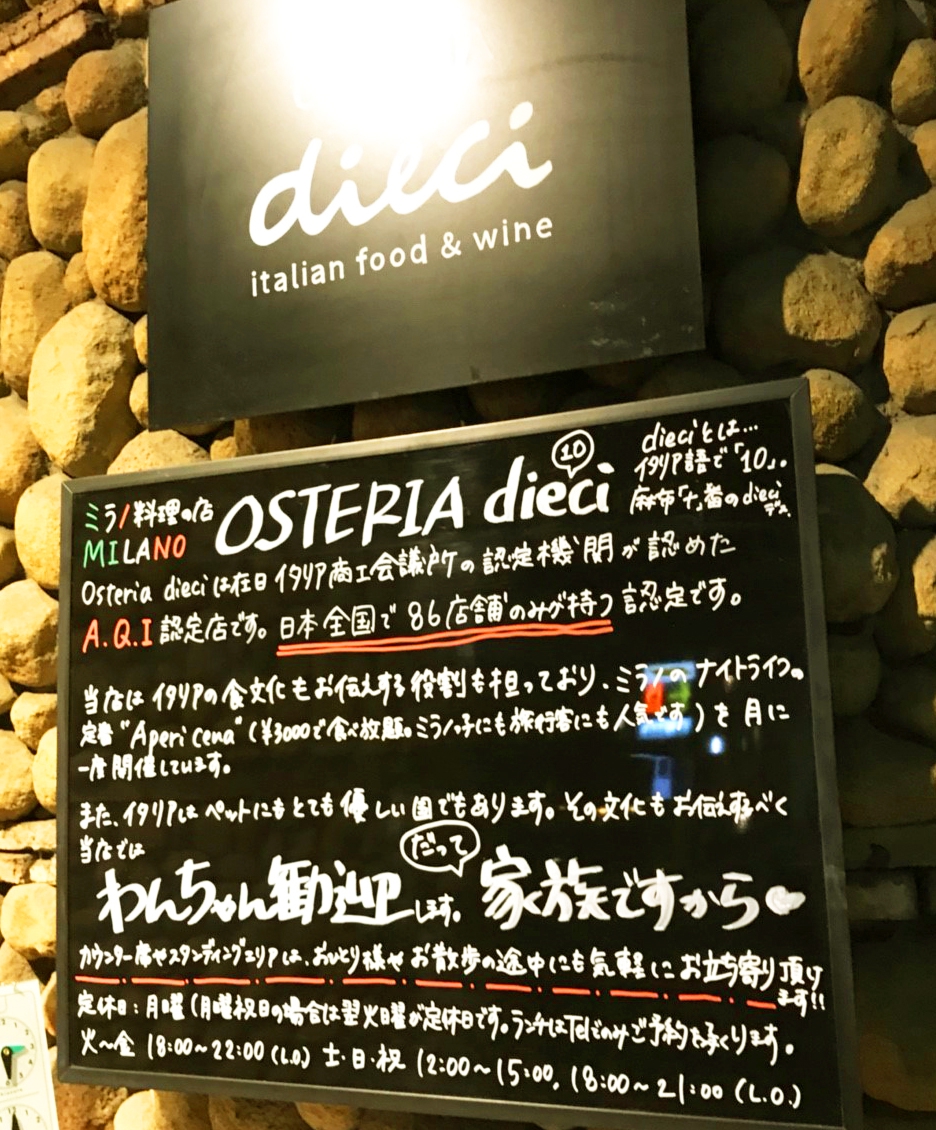 dieci
italian food & wine
ミラノ料理の店
MILANO
OSTERIA dieci
10
dieciとは…
イタリア語で「10」。
麻布「十」番のdieci
Osteria dieciは在日イタリア商工会議所の認定機関が認めた
A.Q.I 認定店です。日本全国で86店舗のみが持つ認定です。
当店はイタリアの食文化もお伝えする役割も担っており、ミラノのナイトライフの
定番"Apericena"(¥3000で食べ放題。ミラノっ子にも旅行客にも人気です)を月に
一度開催しています。
また、イタリアはペットにもとても優しい国でもあります。その文化もお伝えするべく
当店では
だって
わんちゃん歓迎します。家族ですから
カウンター席やスタンディングエリアは、おひとり様やお散歩の途中にも気軽にお立ち寄り頂け
ます!!
定休日:月曜(月曜祝日の場合は翌火曜が定休日です。ランチはTelでのみご予約を承ります。
火〜金 18:00〜22:00(L.O.) 土・日・祝 12:00〜15:00, 18:00〜21:00(L.O.)